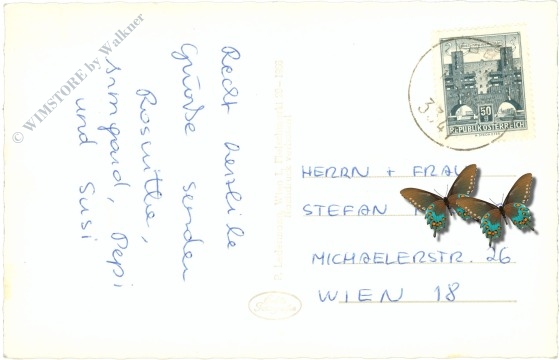 © WIMSTORE by Walkner
Recht herzliche
Grüße senden
Roswitha,
Irmgard, Pepi
und Susi
50
REPUBLIK ÖSTERREICH
HERRN + FRAU
STEFAN
MICHAELERSTR. 26
WIEN 18